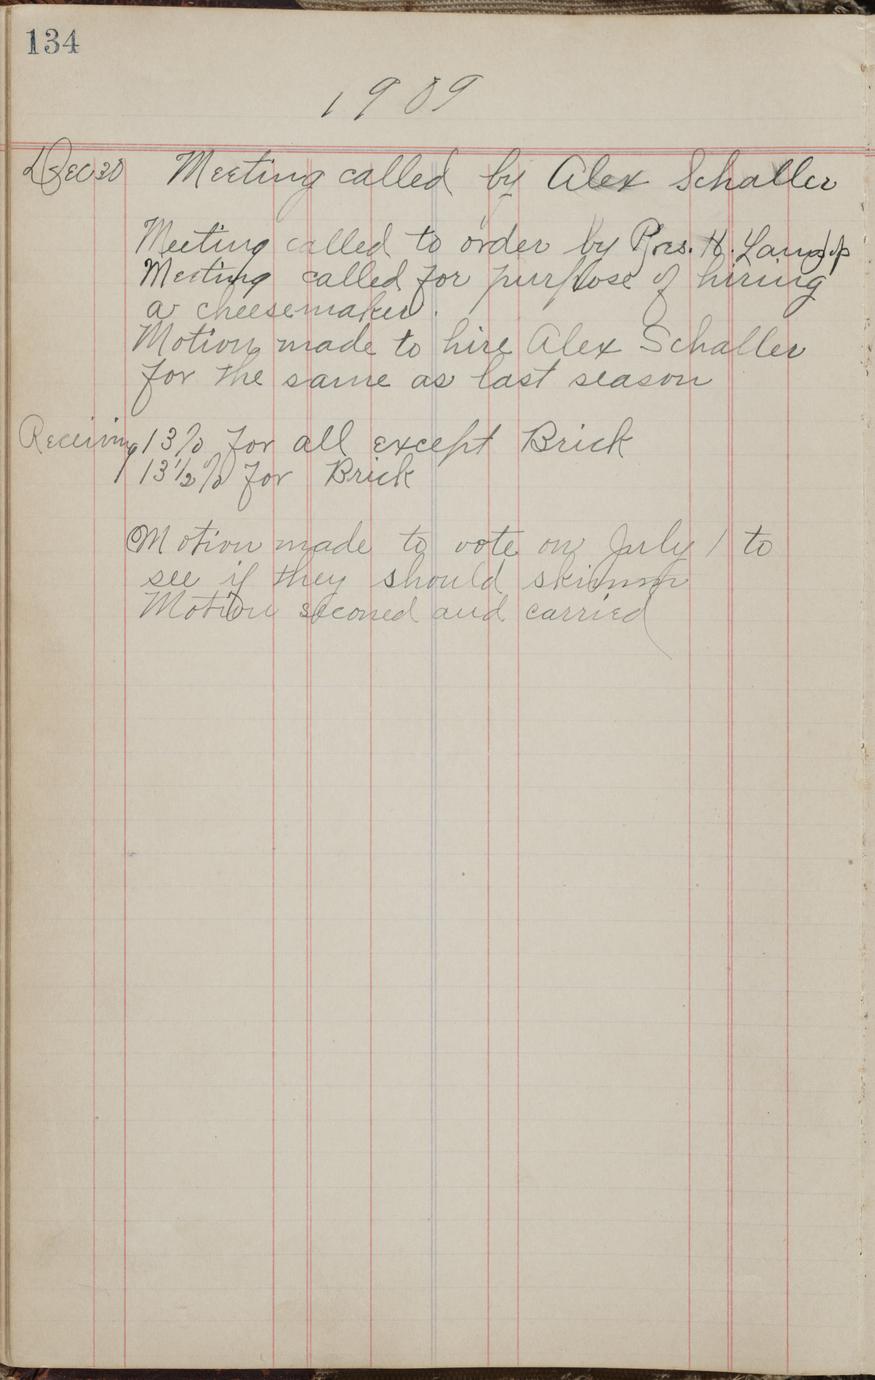 134
1909
Dec 30 Meeting called by Alex Schaller
Meeting called to order by Pres. H.
Meeting called for purpose of hiring
a cheesemaker.
Motion made to hire Alex Schaller
for the same as last season
Receiving 13% for all except Brick
13 1/2 % for Brick
Motion made to vote on July 1 to
see if they should skimm
Motion seconed and carried